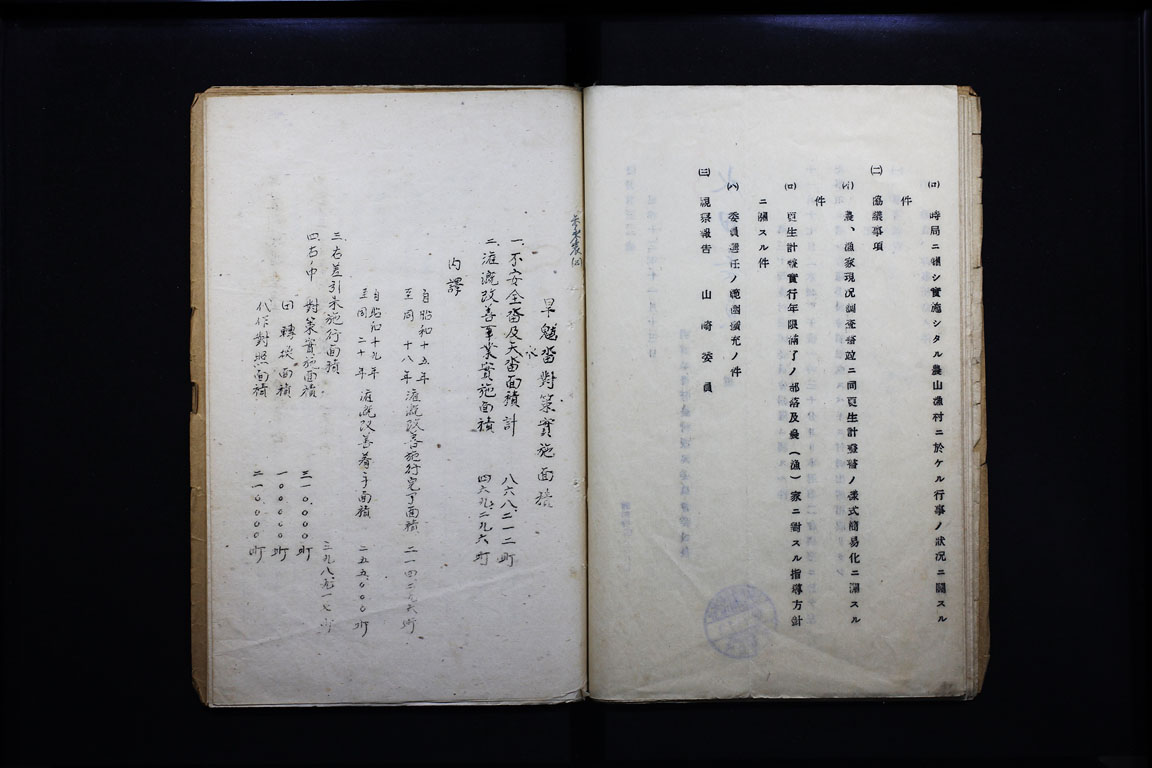 (ロ) 時局ニ鑑シ實施シタル農山漁村ニ於ケル行事ノ狀況ニ關スル
件
(二) 協議事項
(イ) 農、漁家現況調査書竝ニ同更生計畫書ノ樣式簡易化ニ關スル
件
(ロ) 更生計畫實行年限滿了ノ部落及農(漁)家ニ對スル指導方針
ニ關スル件
(ハ) 委員選任ノ範圍擴充ノ件
(三) 視察報告 山崎委員
旱魃畓對策實施面積
一、不安全畓及天水畓面積計 八六八二一二町
二、灌漑改善事業實施面積 四六九二九六町
內譯
自昭和十五年
至同十八年 灌漑改善施行完了面積 二一四二九六町
自昭和十九年
至同二十年 灌漑改善着手面積 二五五〇〇〇町
三、右差引未施行面積 三九八九一七町
四、右ノ中 對策實施面積 三一〇、〇〇〇町
田轉從面積 一〇〇〇〇〇町
代作對照面積 二一〇、〇〇〇町